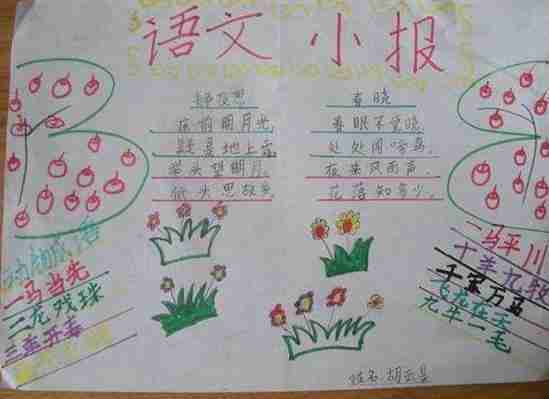 语文小报
静夜思
床前明月光
疑是地上霜
举头望明月。
低头思故乡
春晓
春眠不觉晓
处处闻啼鸟。
夜来风雨声。
花落知多少。
动物成语
一马当先
二龙戏珠
三羊开泰
一马平川
十羊九牧
千军万马
飞龙在天
九牛一毛
姓名 胡云